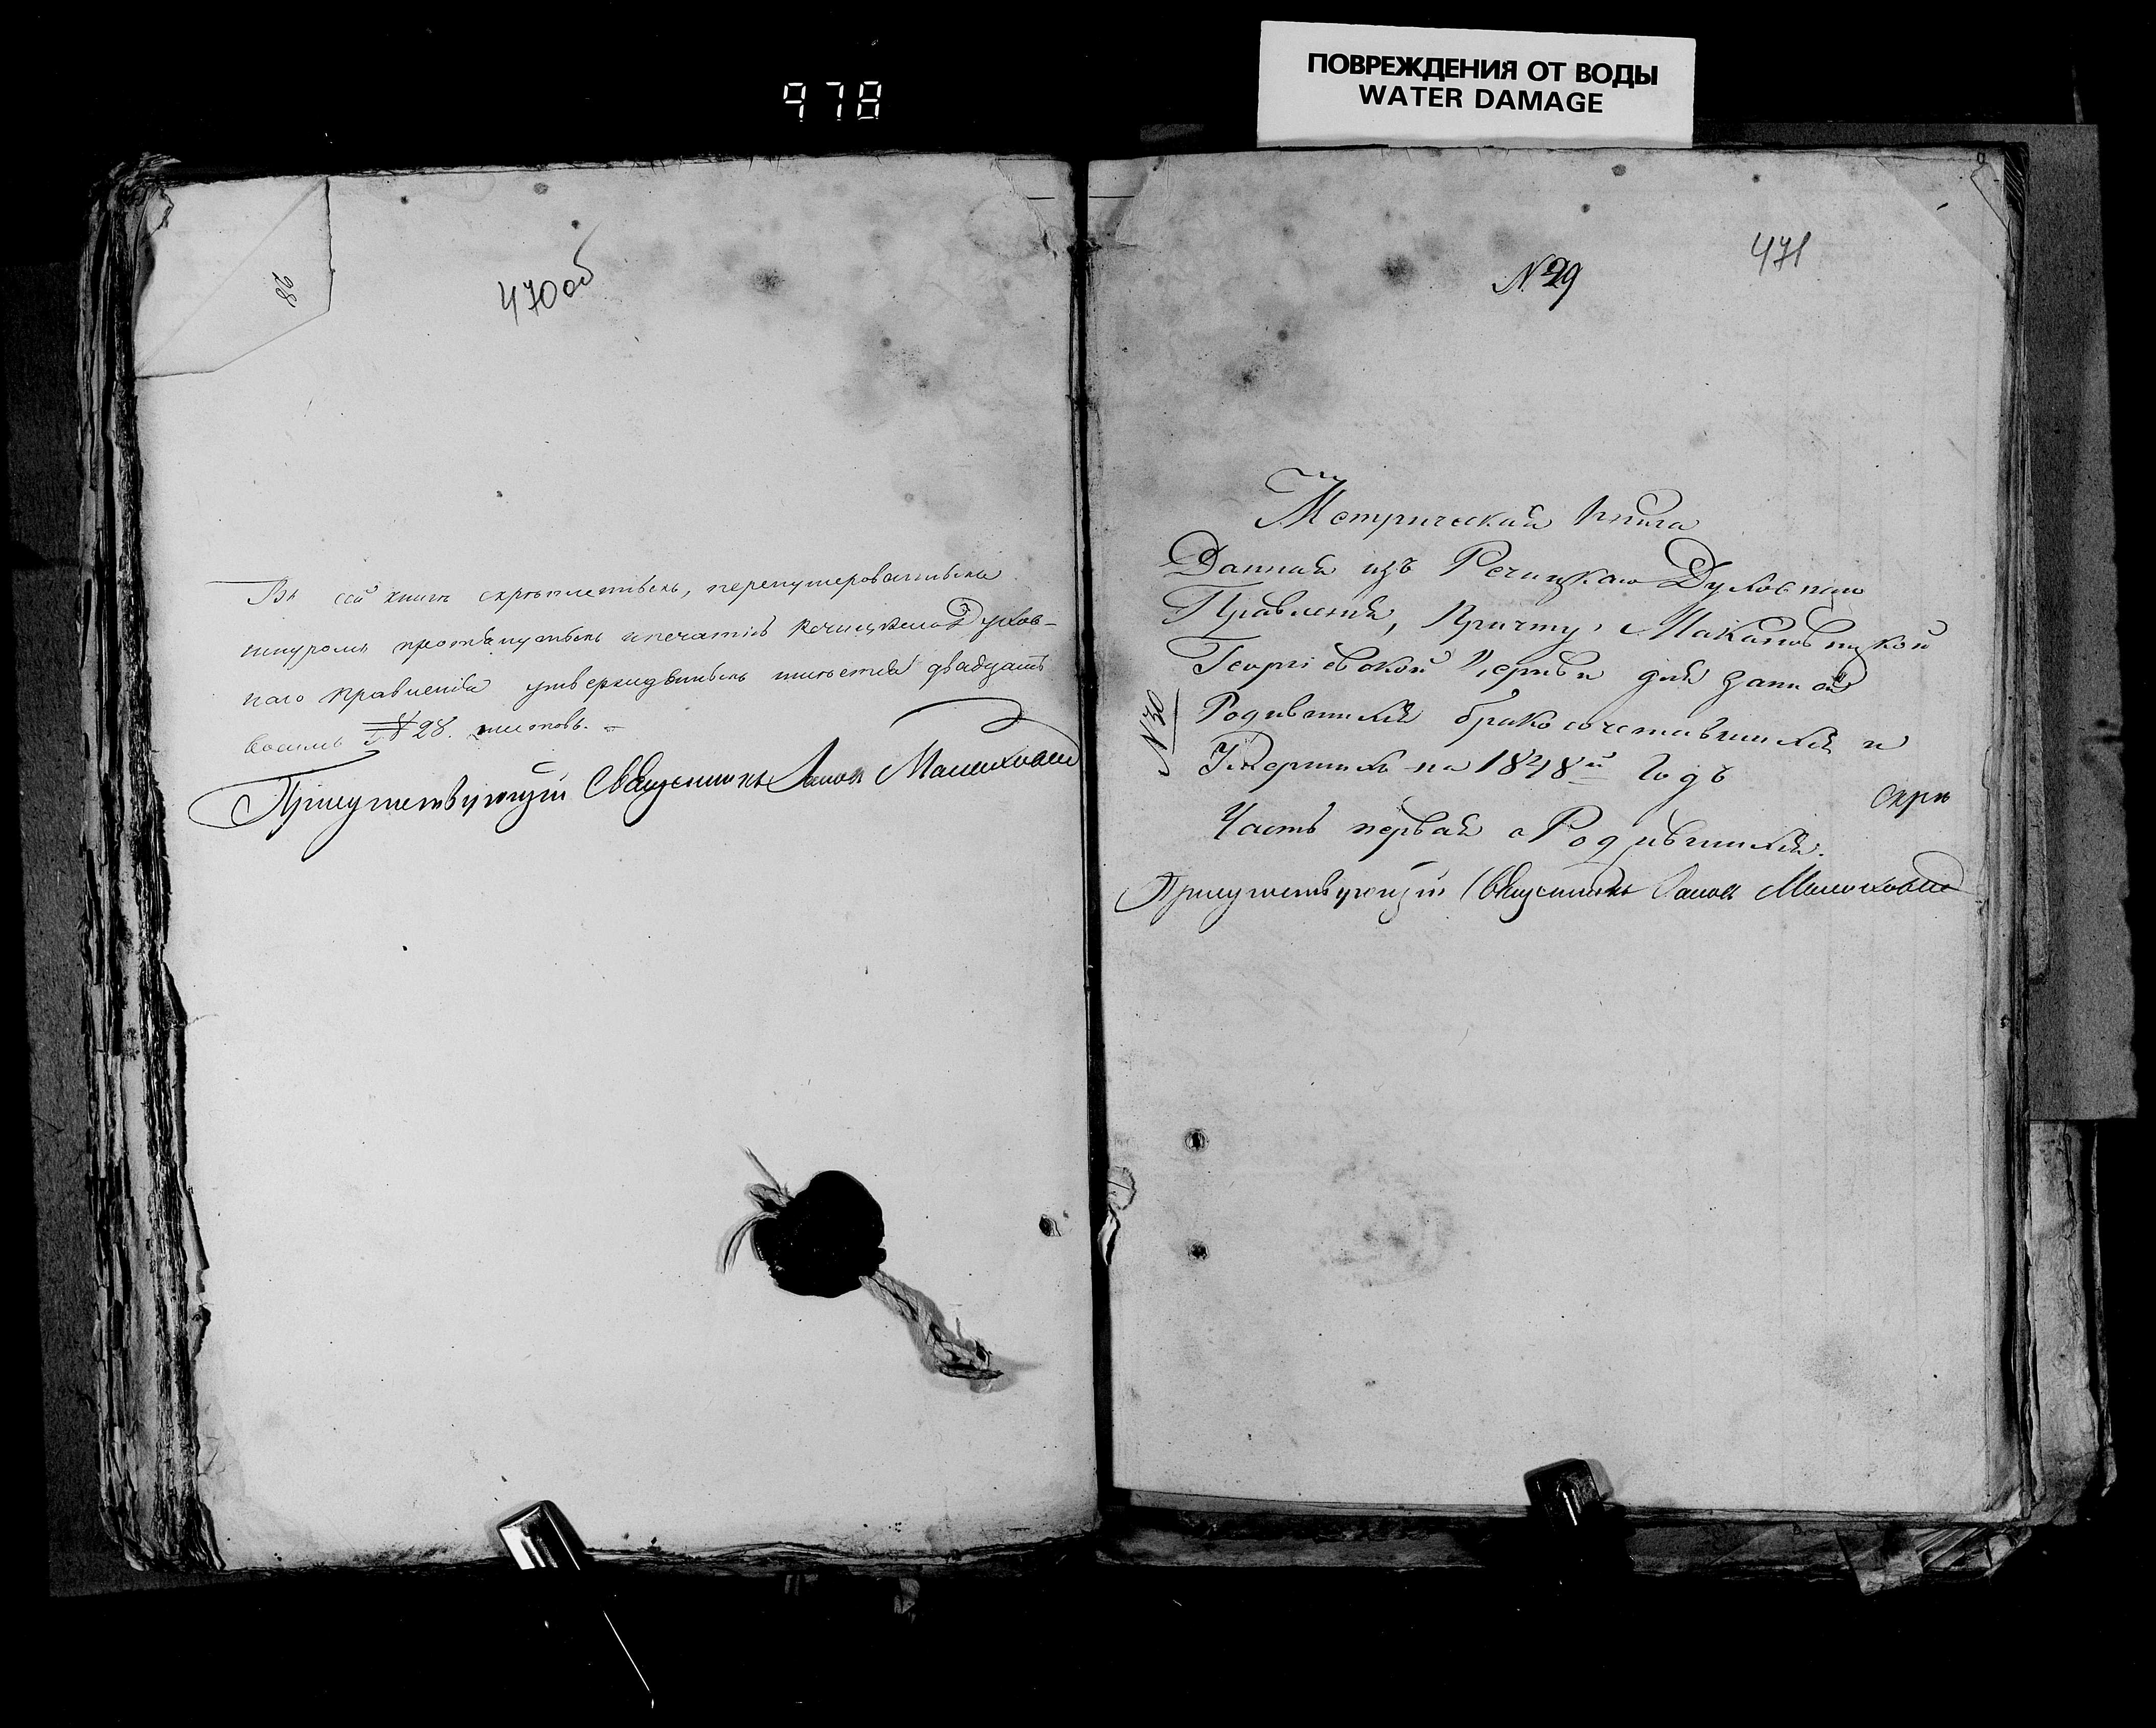 978
ПОВРЕЖДЕНИЯ ОТ ВОДЫ
WATER DAMAGE
28
470об
Въ сей книгѣ скрѣпленныхъ, перенумерованныхъ
шнуромъ протянутыхъ и печатію Рѣчицкаго Духов-
наго Правленія утвержденныхъ листовъ двадцать
восемь 28. листовъ.
Присутствующій Священникъ
№ 29
471
Метрическая Книга
Данная изъ Речицкаго Духовнаго
Правленія, Причту Макановицкой
Георгіевской Церкви для записи
Родившихся бракосочетавшихся и
Умершихъ на 1848й Годъ
№ 30
Скрѣ
Часть первая о Родившихся.
Присутствующій Священникъ